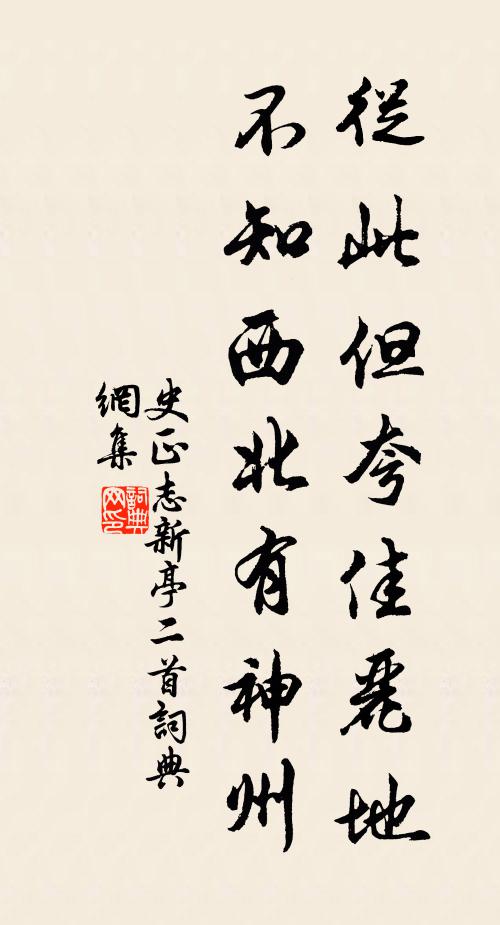 從此但夸佳麗地
不知西北有神州
史正志新亭二首詞典
網集
詞典
网印